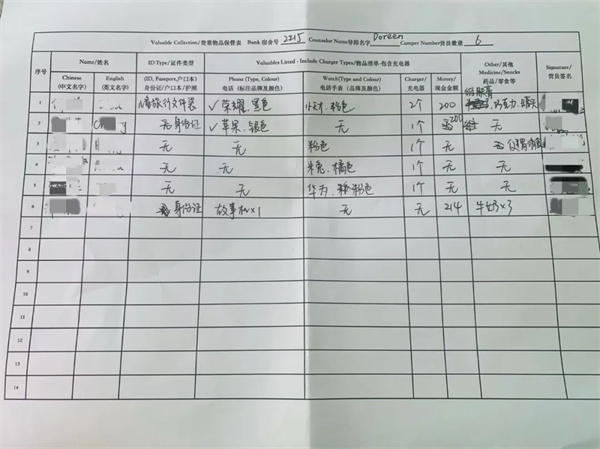 Valuable Collection/贵重物品保管表 Bunk 宿舍号 2215 Counselor Name导师名字 Doreen Camper Number营员数量 6
序号 Name/姓名 ID Type/证件类型 Valuables Listed - Include Charger Types/物品清单-包含充电器 Other/其他 Signature/
Chinese (ID, Passport,户口本) Phone (Type, Colour) Watch(Type and Colour) Charger/ Money/ Medicine/Snacks 营员签名
(中文名字) English (英文名字) 身份证/户口本/护照 电话 (标注品牌及颜色) 电话手表 (品牌及颜色) 充电器 现金金额 药品/零食等
1 ✓ 荣耀,黑色 小天才,粉色 2个 200 巧克力
2 无 身份证 ✓ 苹果,银色 无 1个 200
3 无 无 粉色 1个 无
4 无 无 米兔,橘色 1个 无 无
5 无 无 华为, 粉色 1个 无 无
6 身份证 故事机×1 无 无 214 牛奶×3
7
8
9
10
11
12
13
14